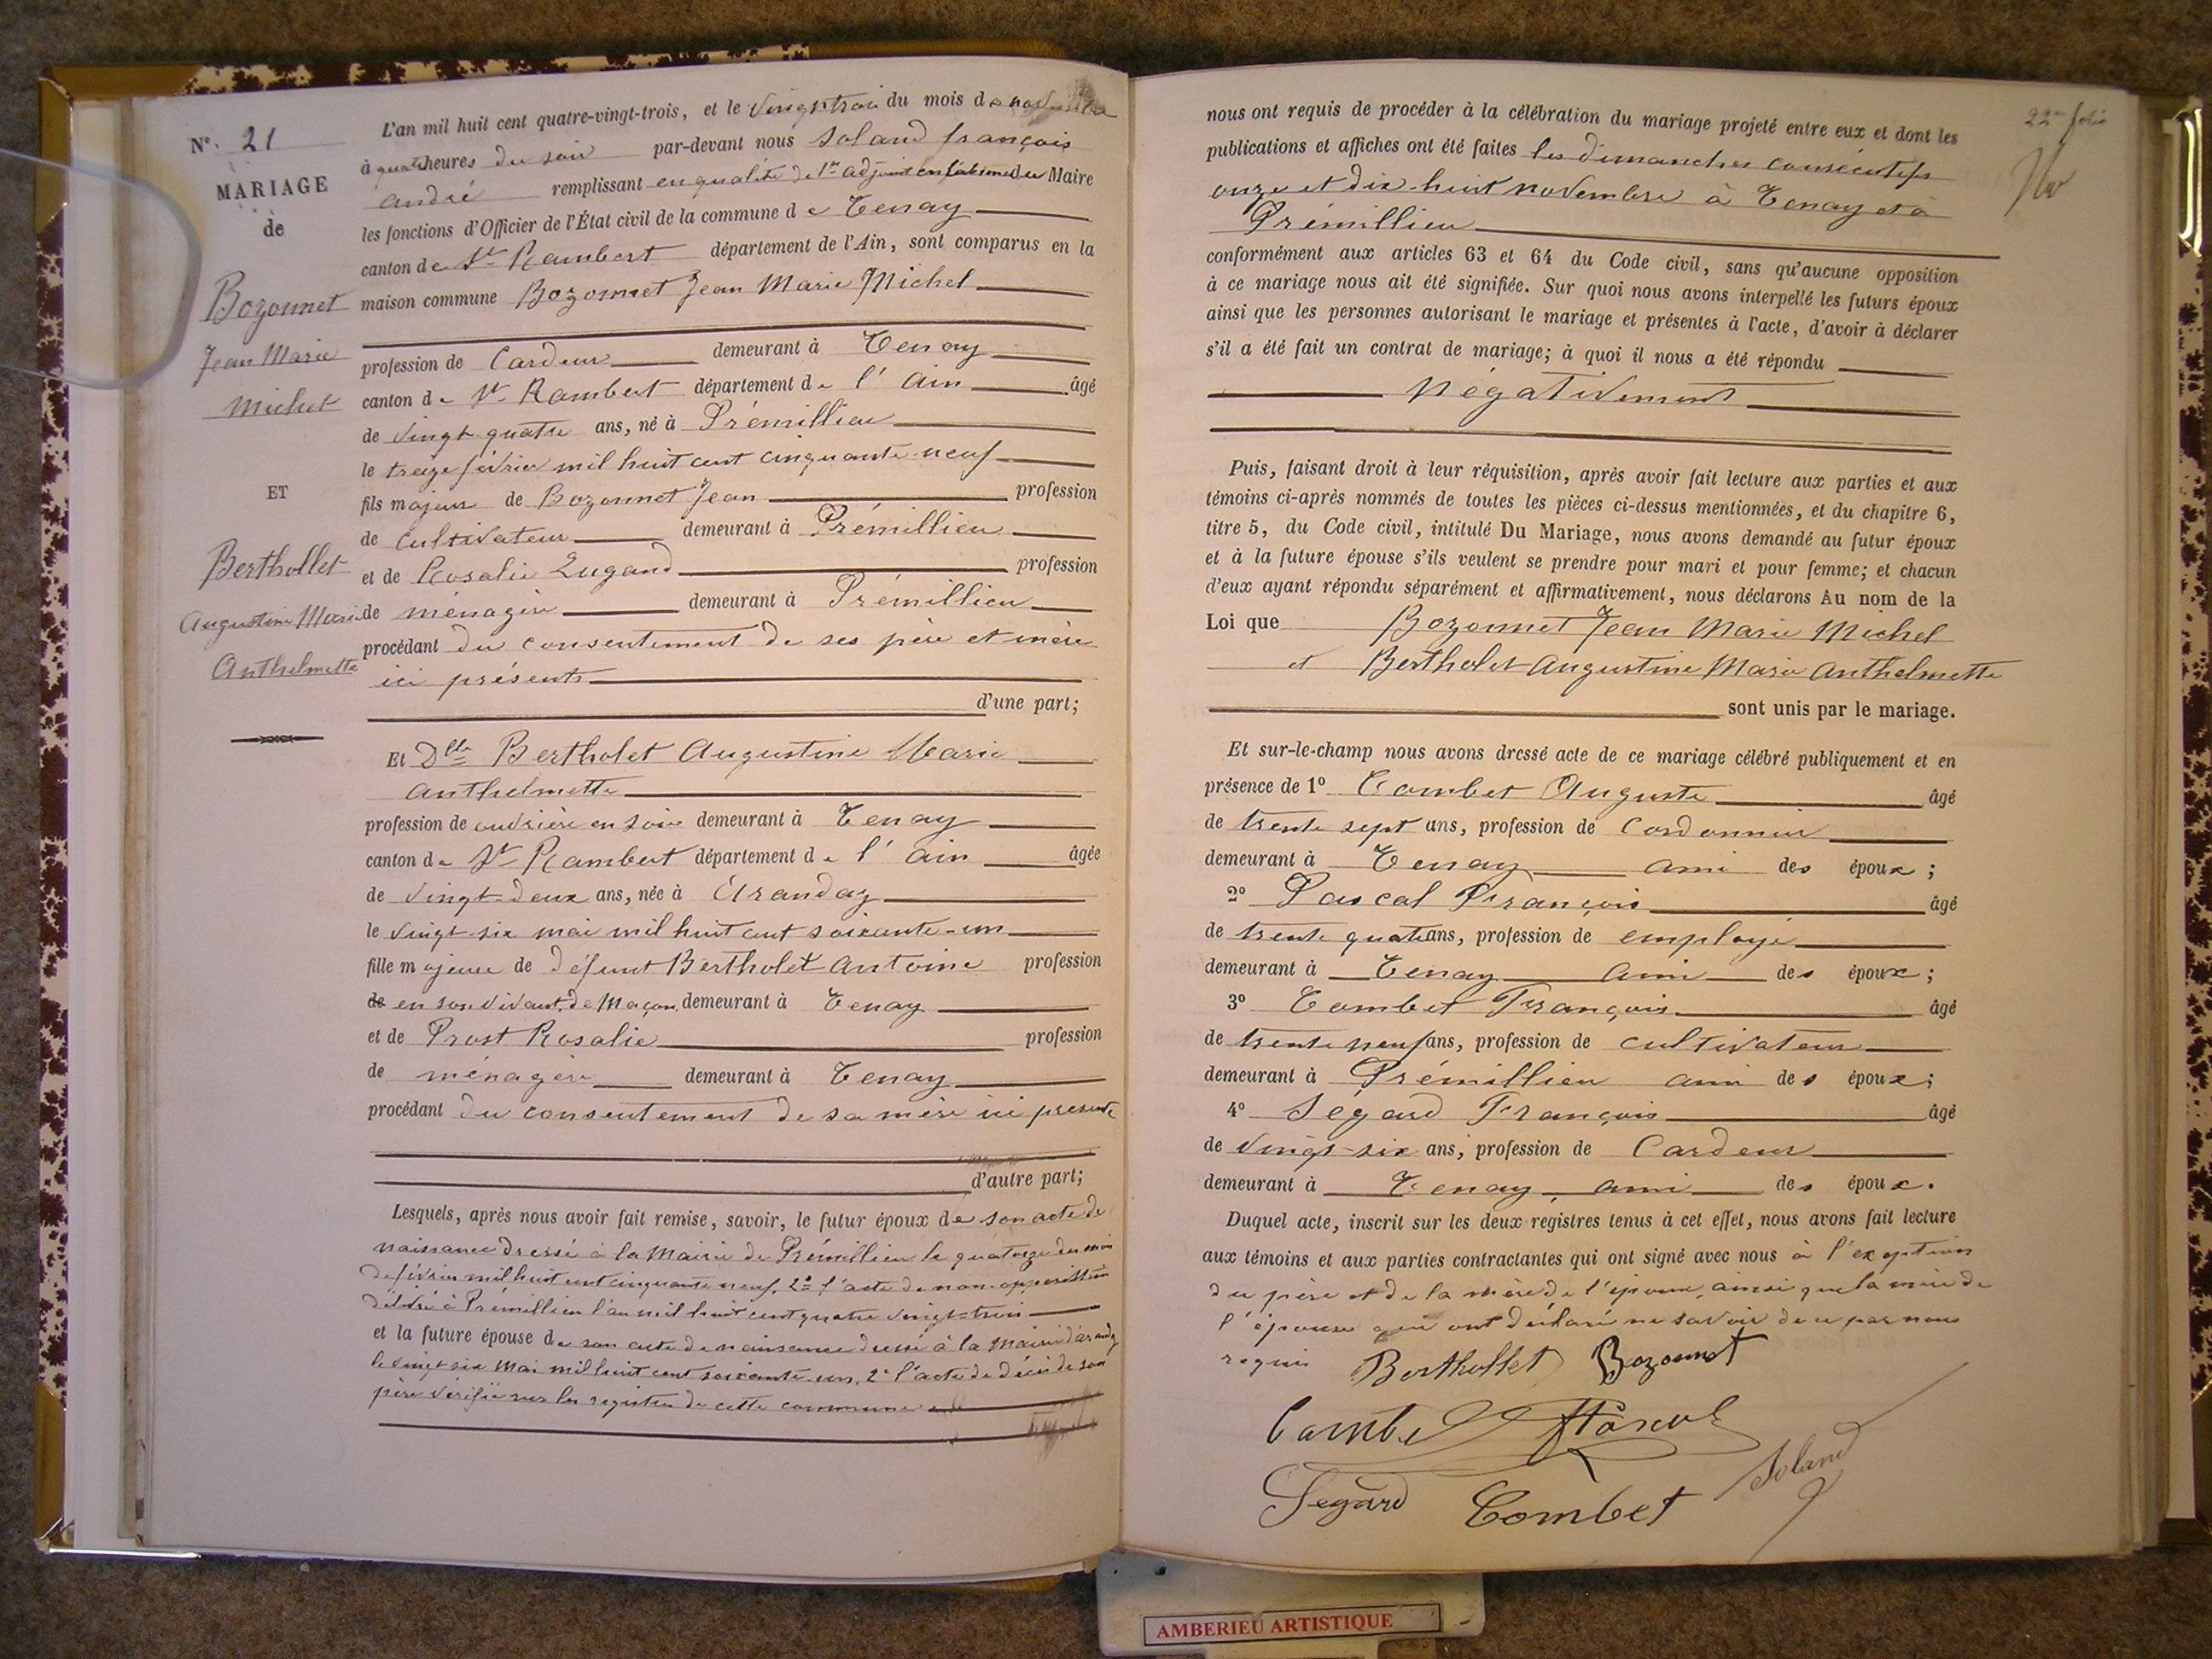 N°. 21
MARIAGE
de
Bozonnet
Jean Marie
Michel
ET
Berthollet
Augustine Marie
Anthelmette
L'an mil huit cent quatre-vingt-trois, et le vingt trois du mois de novembre
à quatre heures du soir par-devant nous Soland françois
andré remplissant en qualité de 1er adjoint en l'absence du Maire
les fonctions d'Officier de l'État civil de la commune de Tenay
canton de St Rambert département de l'Ain, sont comparus en la
maison commune Bozonnet Jean Marie Michel
profession de Cardeur demeurant à Tenay
canton de St Rambert département de l' Ain âgé
de vingt quatre ans, né à Prémillieu
le treize février mil huit cent cinquante-neuf
fils majeur de Bozonnet Jean profession
de Cultivateur demeurant à Prémillieu
et de Rosalie Lugand profession
de ménagère demeurant à Prémillieu
procédant du consentement de ses père et mère
ici présents
d'une part;
Et Dlle Bertholet Augustine Marie
anthelmette
profession de ouvrière en soie demeurant à Tenay
canton de St Rambert département de l' Ain âgée
de vingt-deux ans, née à Arandaz
le vingt-six mai mil huit cent soixante-un
fille majeure de défunt Bertholet Antoine profession
de en son vivant de Maçon, demeurant à Tenay
et de Prost Rosalie profession
de ménagère demeurant à Tenay
procédant du consentement de sa mère ici présente
d'autre part;
Lesquels, après nous avoir fait remise, savoir, le futur époux de son acte de
naissance dressé à la Mairie de Prémillieu le quatorze du mois
de février mil huit cent cinquante neuf, 2° l'acte de non-opposition
délivré à Prémillieu l'an mil huit cent quatre vingt-trois
et la future épouse de son acte de naissance dressé à la Mairie d'arandaz
le vingt six Mai mil huit cent soixante-un, 2° l'acte de décès de son
père vérifié sur les registres de cette commune
22me folio
nous ont requis de procéder à la célébration du mariage projeté entre eux et dont les
publications et affiches ont été faites les dimanches consécutifs
onze et dix-huit novembre à Tenay et à
Prémillieu
conformément aux articles 63 et 64 du Code civil, sans qu'aucune opposition
à ce mariage nous ait été signifiée. Sur quoi nous avons interpellé les futurs époux
ainsi que les personnes autorisant le mariage et présentes à l'acte, d'avoir à déclarer
s'il a été fait un contrat de mariage; à quoi il nous a été répondu
négativement
Puis, faisant droit à leur réquisition, après avoir fait lecture aux parties et aux
témoins ci-après nommés de toutes les pièces ci-dessus mentionnées, et du chapitre 6,
titre 5, du Code civil, intitulé Du Mariage, nous avons demandé au futur époux
et à la future épouse s'ils veulent se prendre pour mari et pour femme; et chacun
d'eux ayant répondu séparément et affirmativement, nous déclarons Au nom de la
Loi que Bozonnet Jean Marie Michel
et Bertholet Augustine Marie Anthelmette
sont unis par le mariage.
Et sur-le-champ nous avons dressé acte de ce mariage célébré publiquement et en
présence de 1° Combet Auguste âgé
de trente sept ans, profession de Cordonnier
demeurant à Tenay ami des époux;
2° Pascal François âgé
de trente quatre ans, profession de employé
demeurant à Tenay ami des époux;
3° Combet François âgé
de trente neuf ans, profession de cultivateur
demeurant à Prémillieu ami des époux;
4° Ségard François âgé
de vingt-six ans, profession de Cardeur
demeurant à Tenay ami des époux.
Duquel acte, inscrit sur les deux registres tenus à cet effet, nous avons fait lecture
aux témoins et aux parties contractantes qui ont signé avec nous à l'exception
du père et de la mère de l'époux, ainsi que la mère de
l'épouse qui ont déclaré ne savoir de ce par nous
requis Berthollet Bozonnet
Combet Pascal
Soland
Segard Combet
AMBERIEU ARTISTIQUE